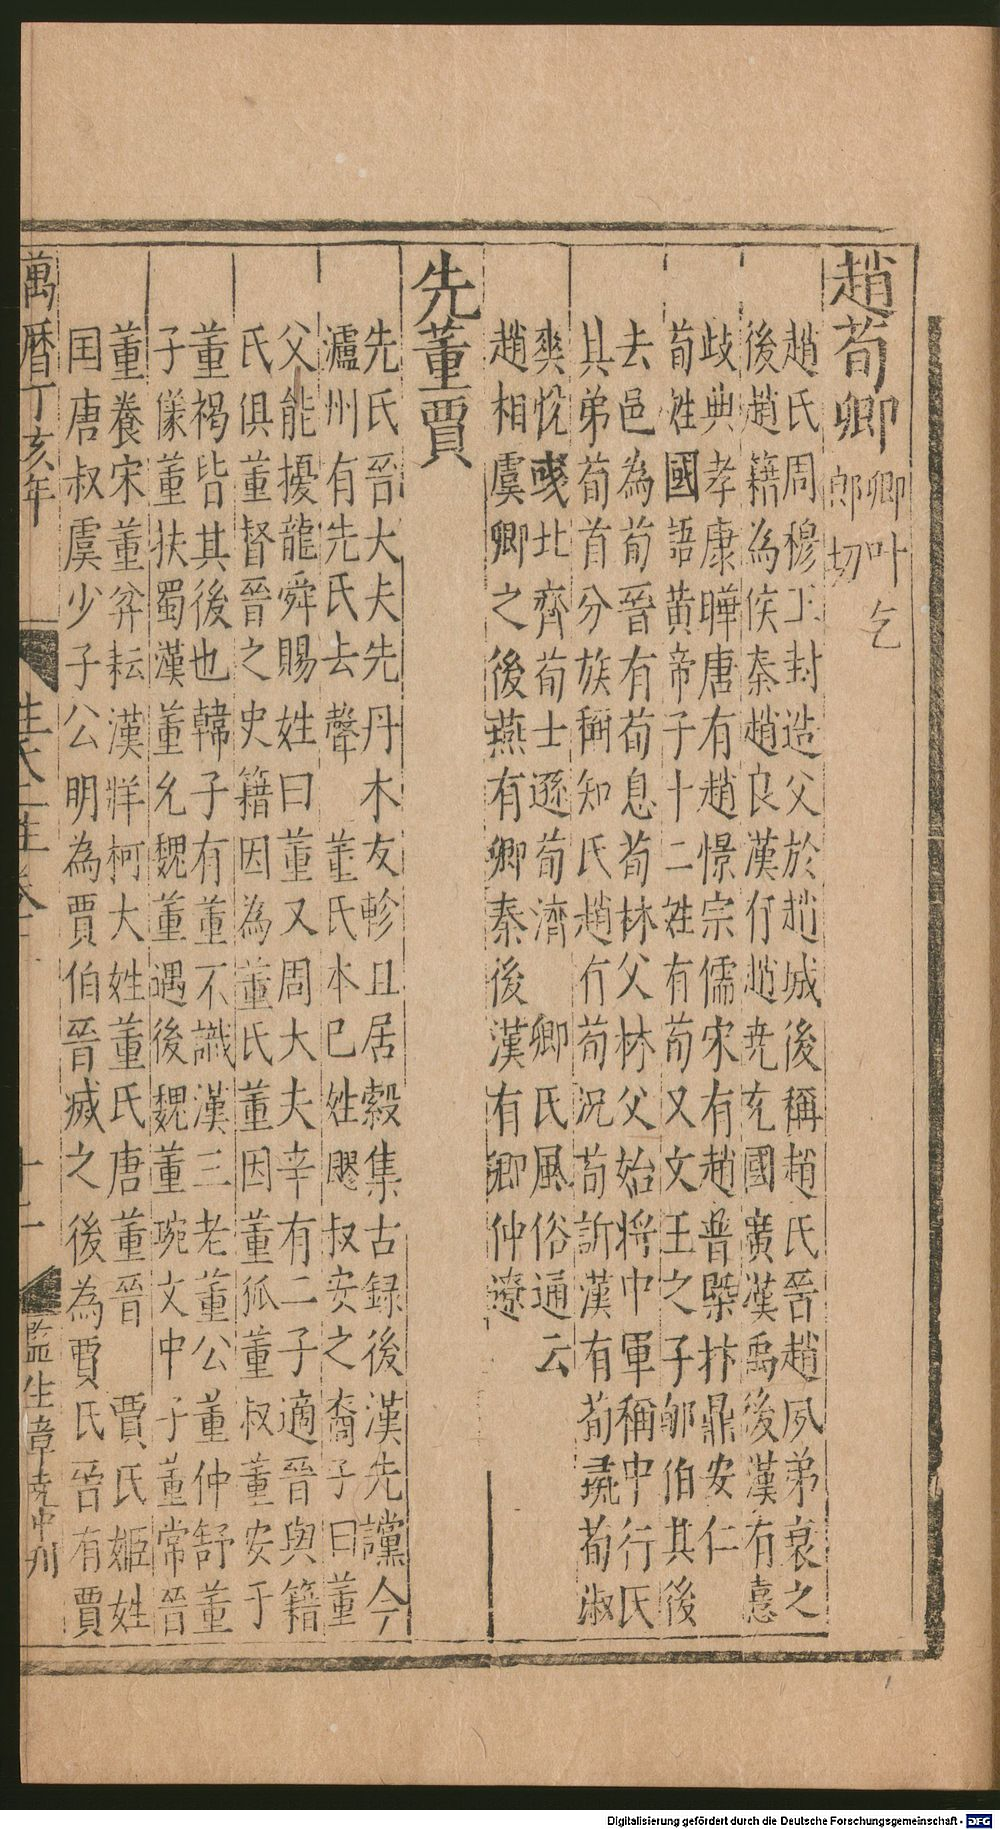 趙荀卿卿叶乞
郎切
趙氏周穆王封造父於趙城後稱趙氏晉趙夙弟衰之
後趙籍為侯秦趙良漢行趙尭充國廣漢禹後漢有憙
歧典孝康曄唐有趙憬宗儒宋有趙普槩抃鼎安仁
荀姓國語黄帝子十二姓有荀又文王之子郇伯其後
去邑為荀晉有荀息荀林父林父始將中軍稱中行氏
其弟荀首分族稱知氏趙有荀況荀訢漢有荀彘荀淑
爽悅彧北齊荀士遜荀濟 卿氏風俗通云
趙相虞卿之後燕有卿秦後漢有卿仲遼
先董賈
先氏晉大夫先丹木友軫且居縠集古録後漢先讜今
瀘州有先氏去聲 董氏本巳姓飂叔安之裔子曰董
父能擾龍舜賜姓曰董又周大夫辛有二子適晉與籍
氏俱董督晉之史籍因為董氏董因董狐董叔董安于
董褐皆其後也韓子有董不識漢三老董公董仲舒董
子儀董扶蜀漢董允魏董遇後魏董琬文中子董常晉
董養宋董弅耘漢牂柯大姓董氏唐董晉 賈氏姬姓
囯唐叔虞少子公明為賈伯晉滅之後為賈氏晉有賈
萬曆丁亥年
監生章 中刋
Digitalisierung gefördert durch die Deutsche Forschungsgemeinschaft - DFG